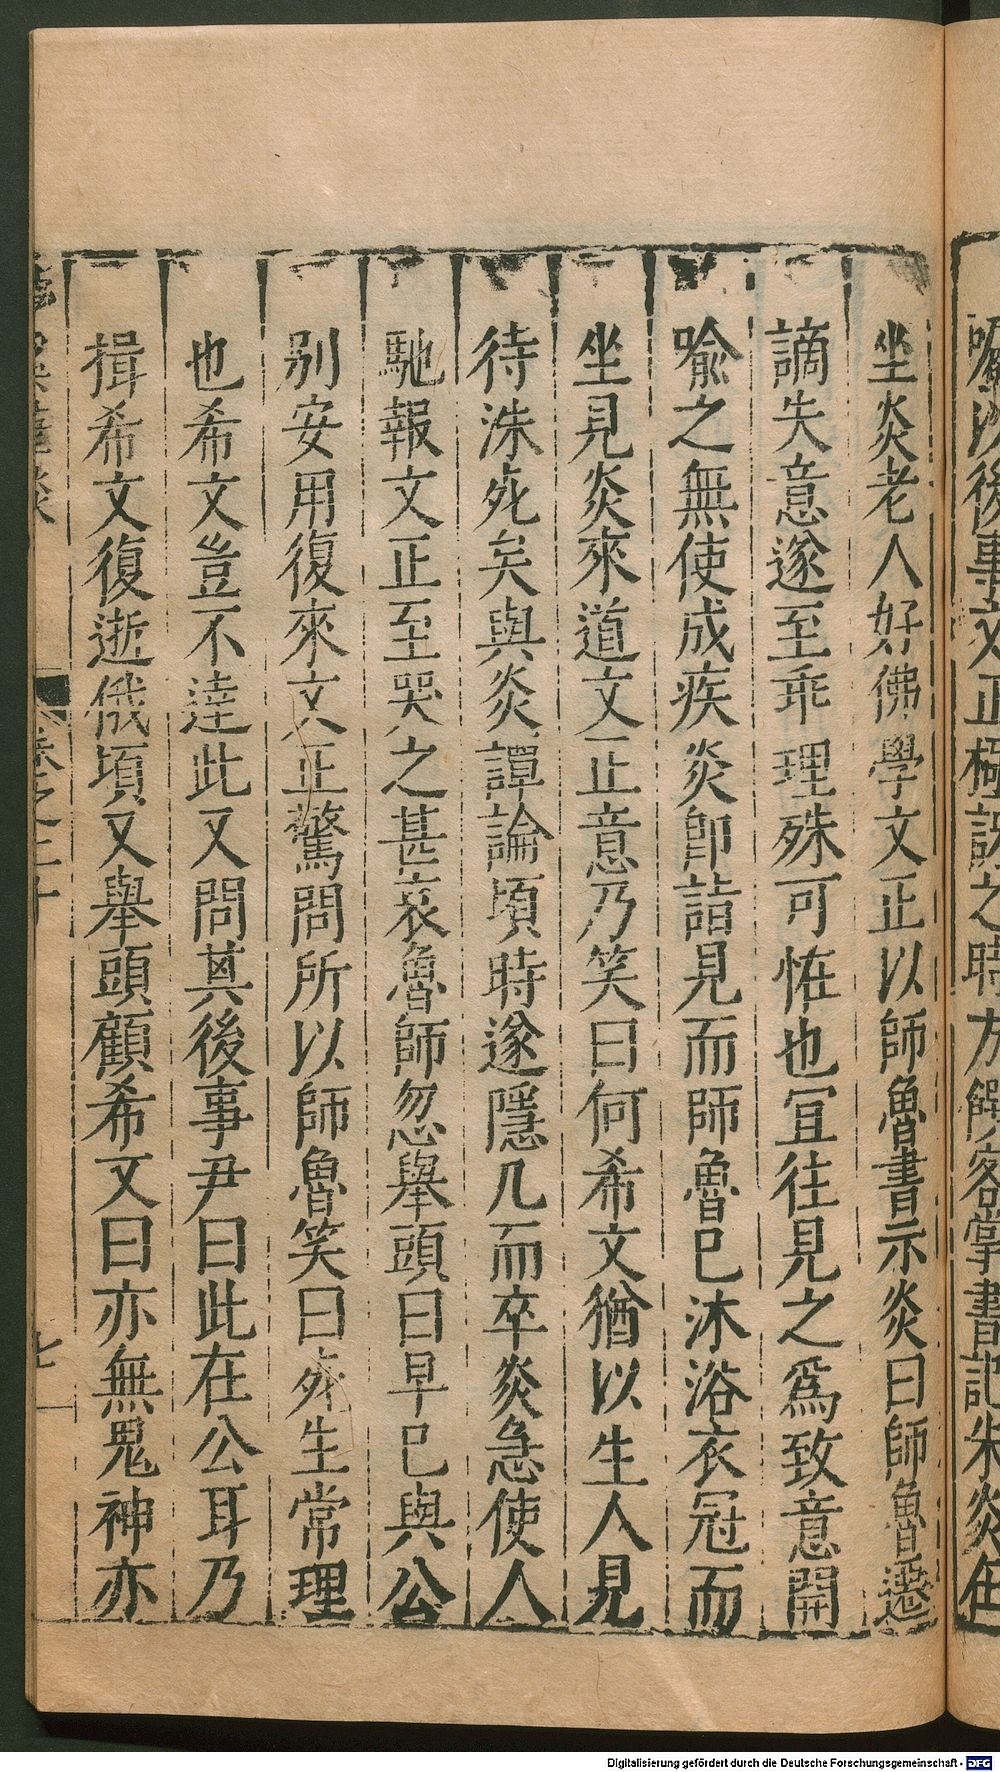 囑以後事文正極訝之時方饌客掌書記朱炎在
坐炎老人好佛學文正以師魯書示炎曰師魯遷
謫失意遂至乖理殊可怪也宜往見之爲致意開
喻之無使成疾炎卽詣見而師魯已沐浴衣冠而
坐見炎來道文正意乃笑曰何希文猶以生人見
待洙死矣與炎譚論頃時遂隱几而卒炎急使人
馳報文正至哭之甚哀魯師忽舉頭曰早已與公
別安用復來文正驚問所以師魯笑曰死生常理
也希文豈不達此又問其後事尹曰此在公耳乃
揖希文復逝俄頃又舉頭顧希文曰亦無鬼神亦
夢溪筆談
卷之二十
七
Digitalisierung gefördert durch die Deutsche Forschungsgemeinschaft - DFG